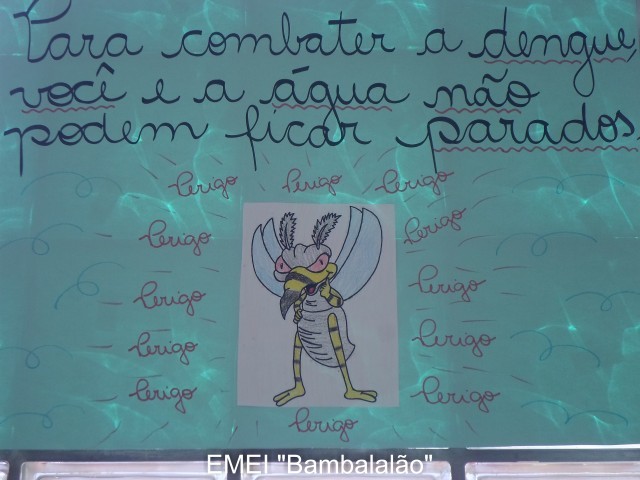 Para combater a dengue,
você e a água não
podem ficar parados.
Perigo Perigo Perigo
Perigo Perigo
Perigo Perigo
Perigo Perigo
Perigo Perigo
Perigo
EMEI "Bambalalão"